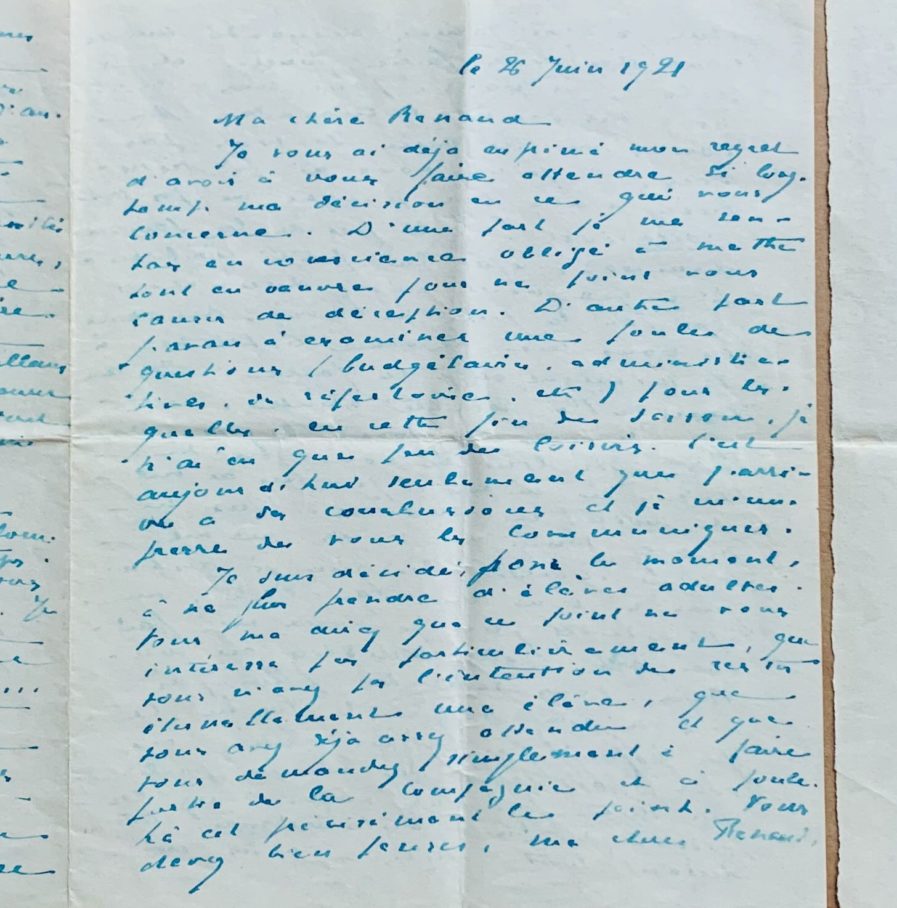 le 26 Juin 1921
Ma chère Renaud
Je vous ai déjà exprimé mon regret
d'avoir à vous faire attendre si long-
temps ma décision en ce qui vous
concerne. D'une part je me sen-
tais en conscience obligé à mettre
tout en œuvre pour ne point vous
causer de déception. D'autre part
j'avais à examiner une foule de
questions (budgétaire, administra-
tives, de répertoire, etc) pour les-
quelles, en cette fin de saison, je
n'ai eu que peu de loisirs. C'est
aujourd'hui seulement que j'arri-
ve à des conclusions et je m'em-
presse de vous les communiquer.
Je suis décidé, pour le moment,
à ne plus prendre d'élèves adultes.
Vous me direz que ce point ne vous
intéresse pas particulièrement, que
vous n'avez pas l'intention de rester
éternellement une élève, que
vous avez déjà assez attendu et que
vous demandez simplement à faire
partie de la Compagnie et à jouer.
Là est précisément le point. Vous
devez bien penser, ma chère Renaud,